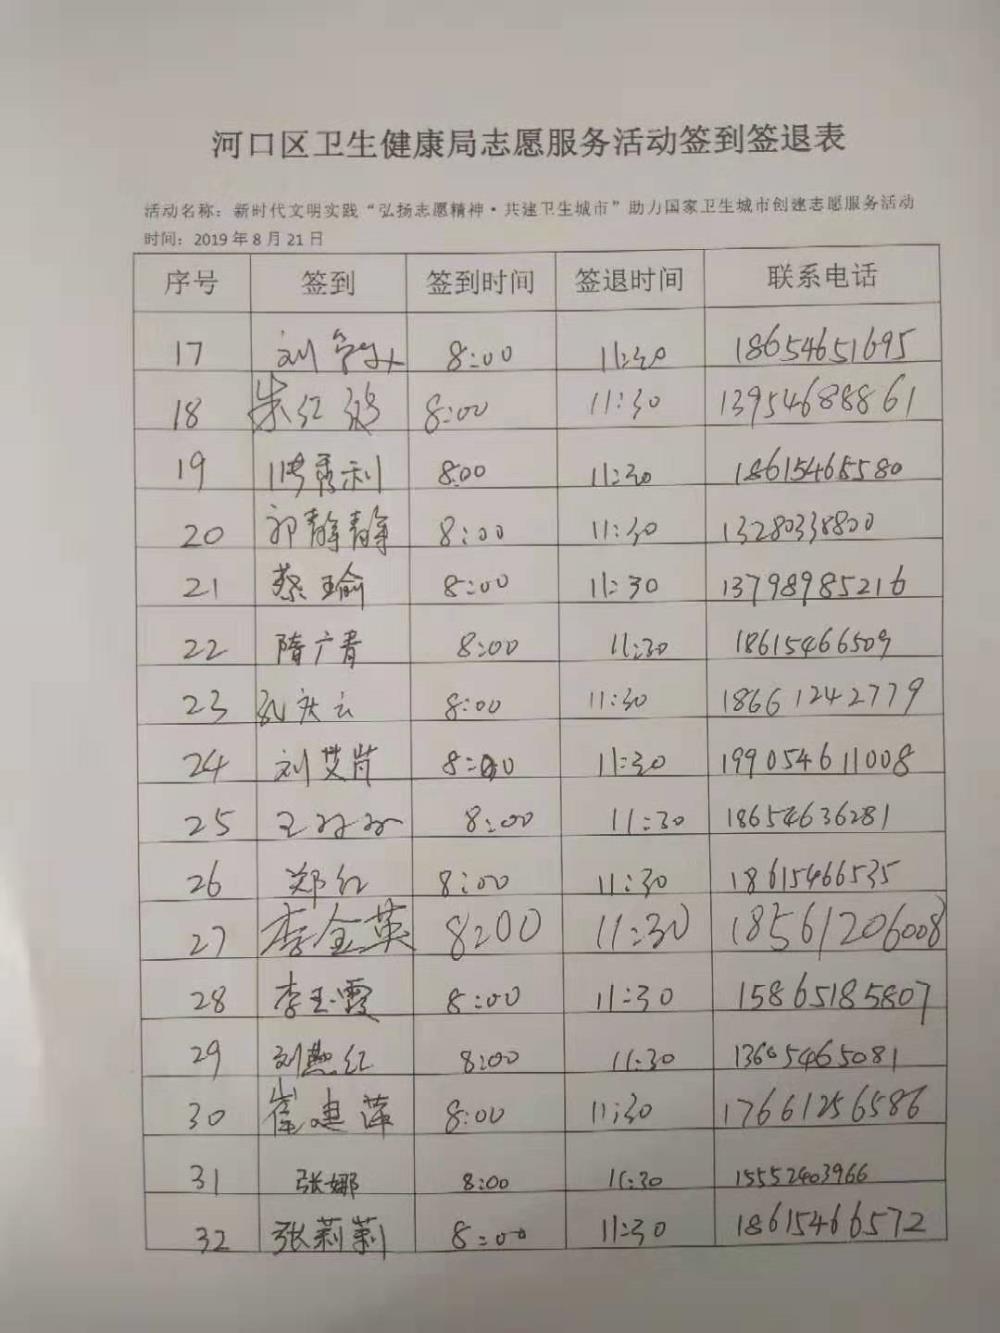 河口区卫生健康局志愿服务活动签到签退表
活动名称：新时代文明实践“弘扬志愿精神·共建卫生城市”助力国家卫生城市创建志愿服务活动
时间：2019年8月21日
序号 签到 签到时间 签退时间 联系电话
17 刘 8:00 11:30 18654651695
18 朱红 8:00 11:30 13954688861
19 秀利 8:00 11:30 18615465580
20 郭静静 8:00 11:30 13280338800
21 蔡瑜 8:00 11:30 13798985216
22 隋广青 8:00 11:30 18615466509
23 孔庆云 8:00 11:30 18661242779
24 刘艾芹 8:00 11:30 19905461108
25 王 8:00 11:30 18654636281
26 郑红 8:00 11:30 18615466535
27 李全英 8:00 11:30 18561206008
28 李玉霞 8:00 11:30 15865185807
29 刘燕红 8:00 11:30 13605465081
30 崔建萍 8:00 11:30 17661256586
31 张娜 8:00 11:30 15552403966
32 张莉莉 8:00 11:30 18615466572